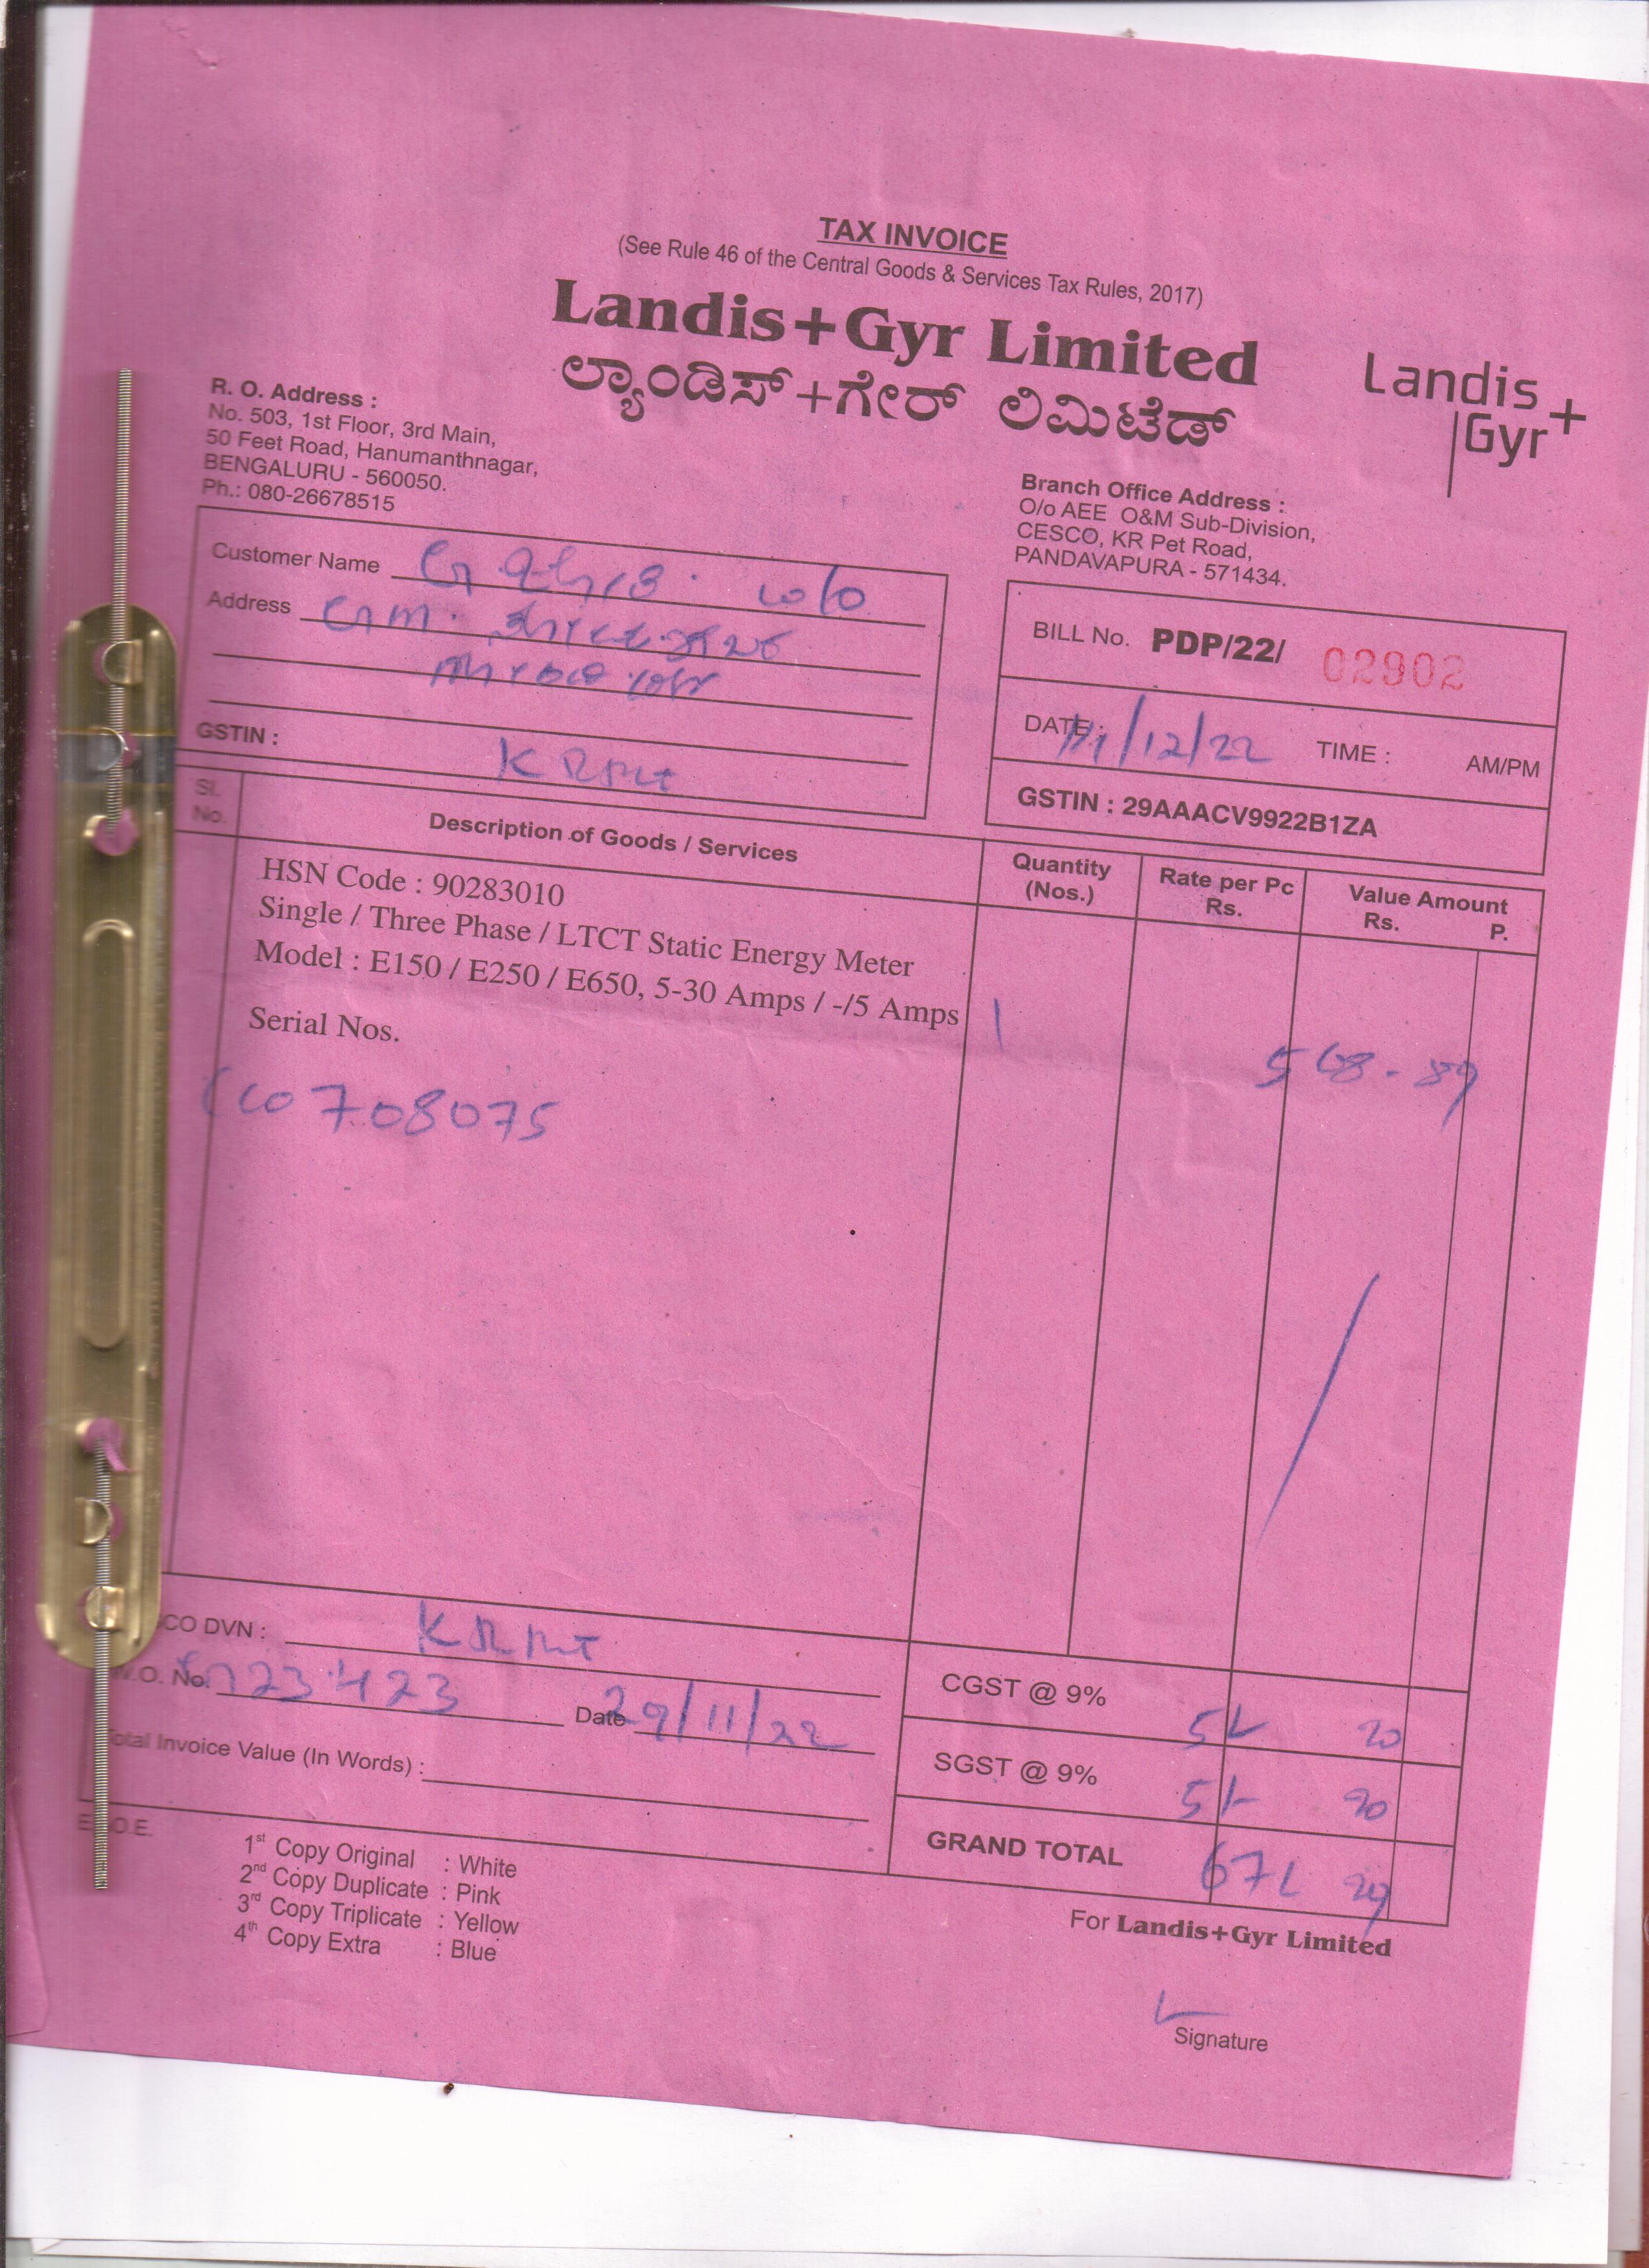 TAX INVOICE
(See Rule 46 of the Central Goods & Services Tax Rules, 2017)
Landis+Gyr Limited
ಲ್ಯಾಂಡಿಸ್+ಗೇರ್ ಲಿಮಿಟೆಡ್
Landis
Gyr+
R. O. Address :
No. 503, 1st Floor, 3rd Main,
50 Feet Road, Hanumanthnagar,
BENGALURU - 560050.
Ph.: 080-26678515
Branch Office Address :
O/o AEE O&M Sub-Division,
CESCO, KR Pet Road,
PANDAVAPURA - 571434.
Customer Name w/o
Address
GSTIN :
BILL No. PDP/22/ 02902
DATE : /12/22 TIME : AM/PM
GSTIN : 29AAACV9922B1ZA
Sl. No. Description of Goods / Services Quantity (Nos.) Rate per Pc Rs. Value Amount Rs. P.
HSN Code : 90283010
Single / Three Phase / LTCT Static Energy Meter
Model : E150 / E250 / E650, 5-30 Amps / -/5 Amps 1
Serial Nos.
CO DVN :
W.O. No. Date 29/11/22
Total Invoice Value (In Words) :
CGST @ 9% 20
SGST @ 9% 20
GRAND TOTAL
E.&O.E.
1st Copy Original : White
2nd Copy Duplicate : Pink
3rd Copy Triplicate : Yellow
4th Copy Extra : Blue
For Landis+Gyr Limited
Signature